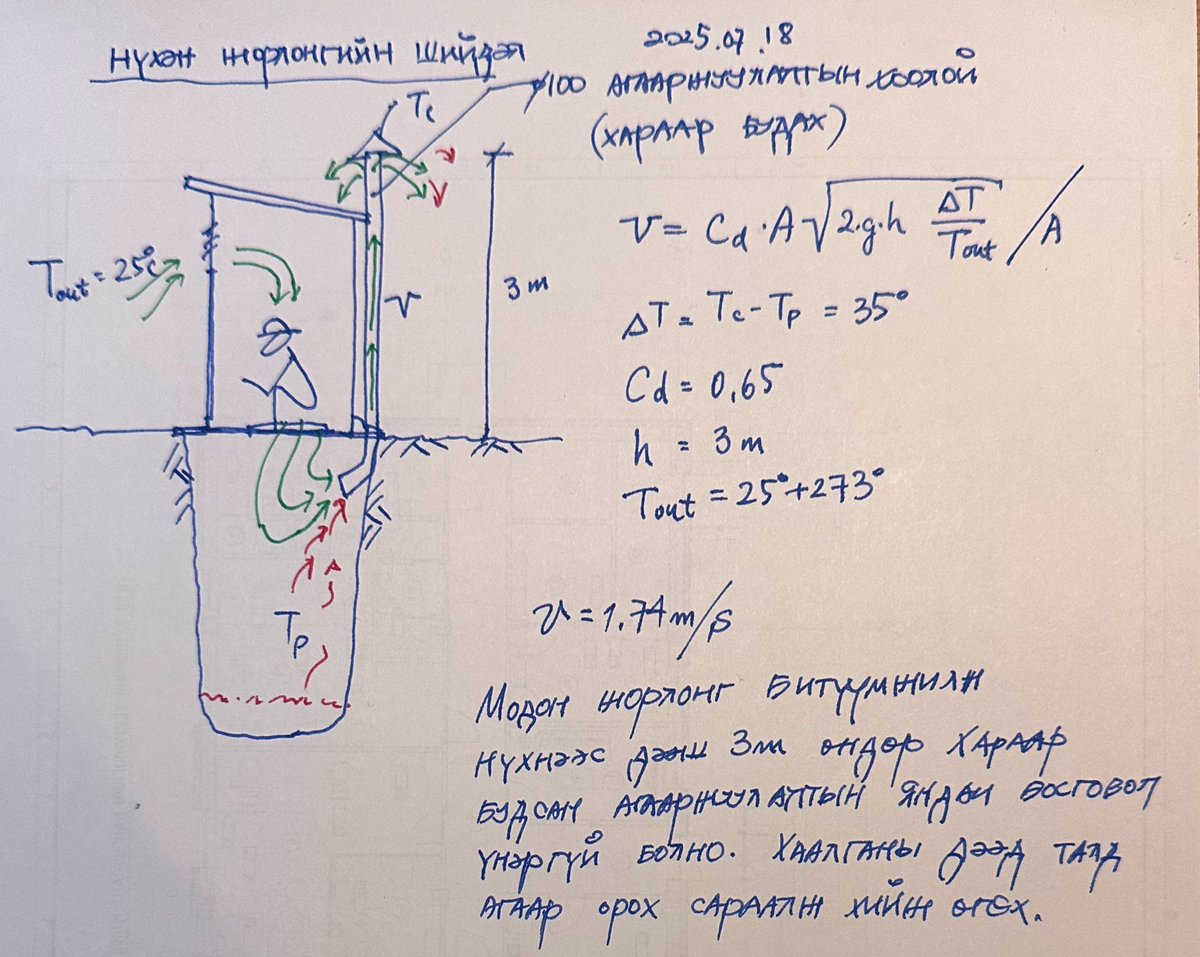 НҮХЭН ЖОРЛОНГИЙН ШИЙДЭЛ
2025.07.18
ϕ100 АГААРЖУУЛАЛТЫН ХООЛОЙ
(ХАРААР БУДАХ)
Tc
Tout = 25°C
v
3 m
Tp
v = Cd · A √(2·g·h ΔT/Tout) / A
ΔT = Tc - Tp = 35°
Cd = 0,65
h = 3 m
Tout = 25° + 273°
v = 1.74 m/s
Модон жорлонг битүүмжилж
нүхнээс дээш 3м өндөр хараар
будсан агааржуулалтын яндан босговол
үнэргүй болно. Хаалганы дээд талд
агаар орох сараалж хийж өгөх.